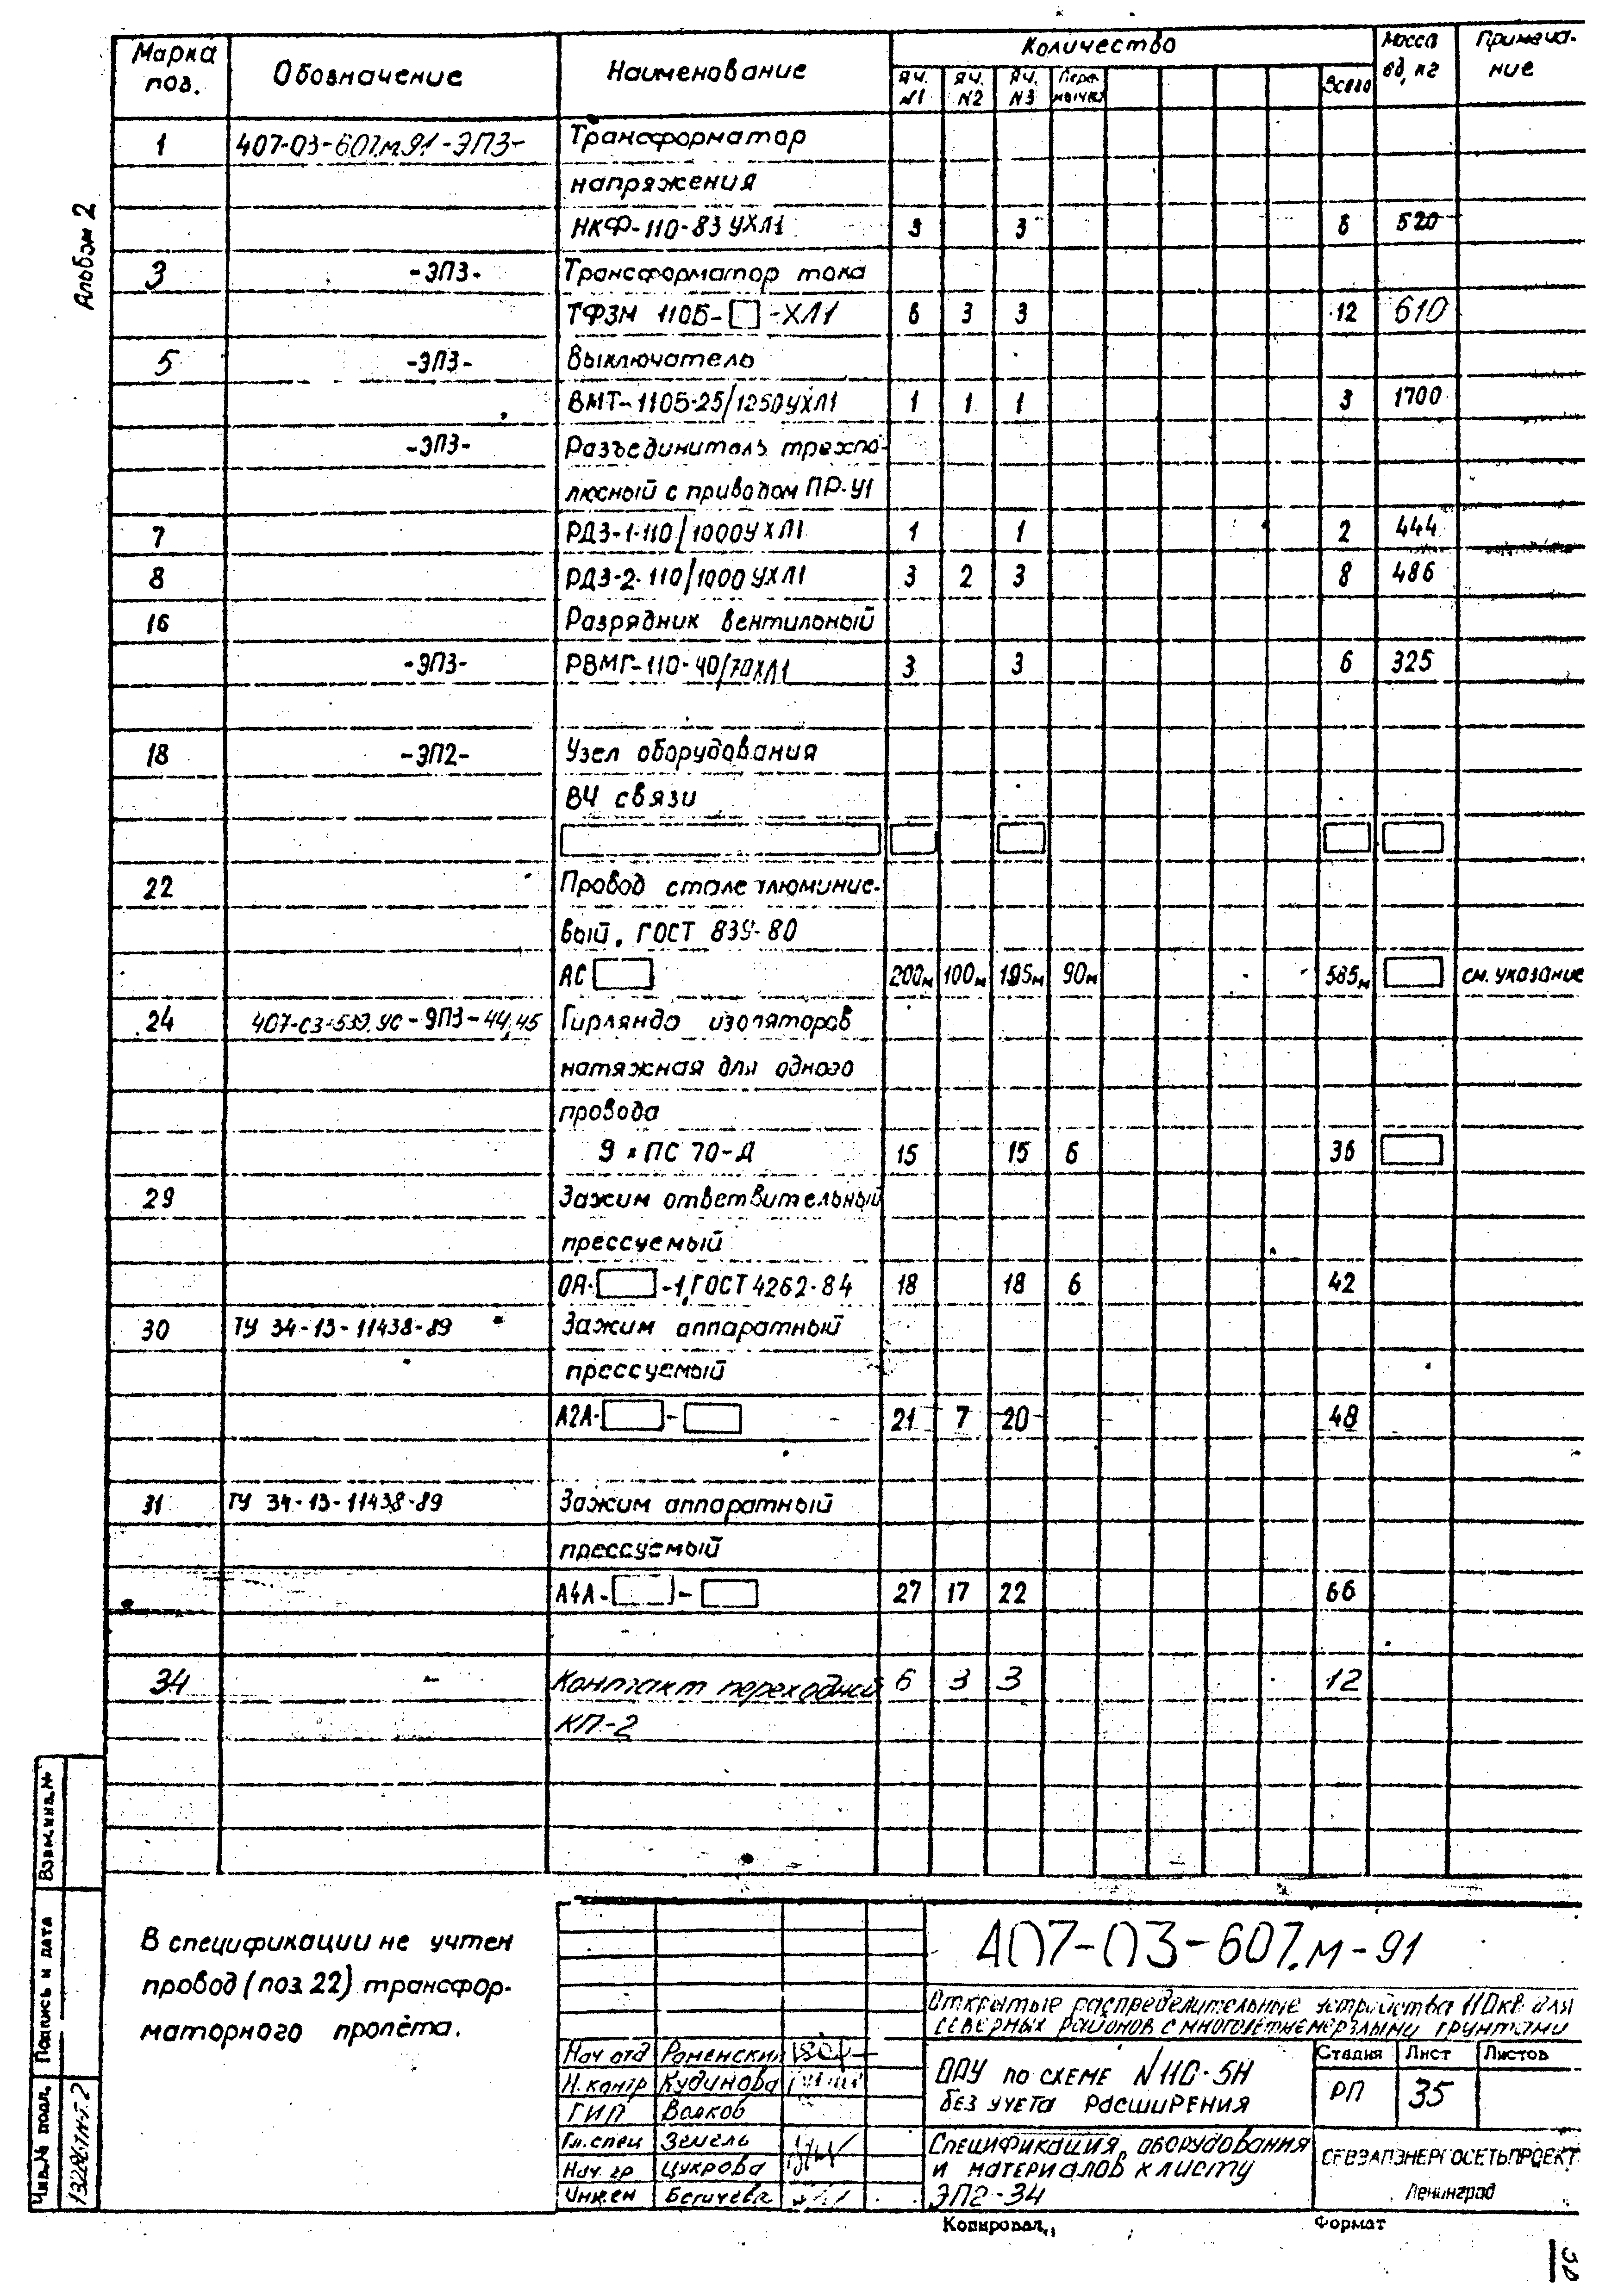 Альбом 2
Марка поз. Обозначение Наименование Количество Масса ед, кг Примеча-ние
Яч. N1 Яч. N2 Яч. N3 Пере мычка Всего
1 407-03-607.м.91-ЭП3- Трансформатор
напряжения
НКФ-110-83 УХЛ1 3 3 6 520
3 -ЭП3- Трансформатор тока
ТФЗМ 110Б- -ХЛ1 6 3 3 12 610
5 -ЭП3- Выключатель
ВМТ-110Б-25/1250УХЛ1 1 1 1 3 1700
-ЭП3- Разъединитель трехпо-
люсный с приводом ПР-У1
7 РДЗ-1-110/1000УХЛ1 1 1 2 444
8 РДЗ-2-110/1000 УХЛ1 3 2 3 8 486
16 Разрядник вентильный
-ЭП3- РВМГ-110-40/70ХЛ1 3 3 6 325
18 -ЭП2- Узел оборудования
ВЧ связи
22 Провод сталеалюминие-
вый, ГОСТ 839-80
АС 200м 100м 195м 90м 585м см. указание
24 407-03-539.90-ЭП3-44,45 Гирлянда изоляторов
натяжная для одного
провода
9 × ПС 70-Д 15 15 6 36
29 Зажим ответвительный
прессуемый
ОА- -1, ГОСТ 4262-84 18 18 6 42
30 ТУ 34-13-11438-89 Зажим аппаратный
прессуемый
А2А- - 21 7 20 48
31 ТУ 34-13-11438-89 Зажим аппаратный
прессуемый
А4А- - 27 17 22 66
34 - Контакт переходной 6 3 3 12
КП-2
В спецификации не учтен
провод (поз. 22) трансфор-
маторного пролёта.
407-03-607.м-91
Открытые распределительные устройства 110кВ для
северных районов с многолетнемерзлыми грунтами
Нач отд Роменский
Н. контр Кудинова
ГИП Волков
Гл. спец Земель
Нач. гр Цукрова
Инжен Бегичева
ОРУ по схеме N110-5Н
без учета расширения
Стадия Лист Листов
РП 35
Спецификация оборудования
и материалов к листу
ЭП2-34
СЕВЗАПЭНЕРГОСЕТЬПРОЕКТ
Ленинград
Копировал
Формат
Взам.инв.№
Подпись и дата
Инв.№ подл.